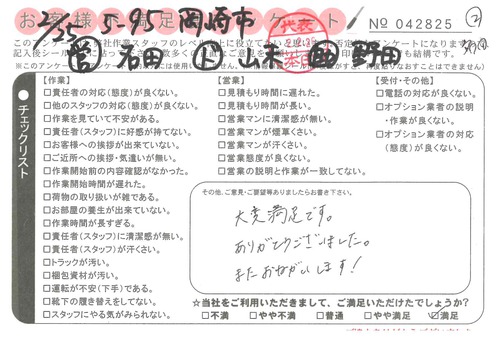 お客様満足アンケート
2/25 5-95 岡崎市
No 042825 ②
営 石田 上 山本 野田
チェックリスト
【作業】
□責任者の対応(態度)が良くない。
□他のスタッフの対応(態度)が良くない。
□作業を見ていて不安がある。
□責任者(スタッフ)に好感が持てない。
□お客様への挨拶が出来ていない。
□ご近所への挨拶・気遣いが無い。
□作業開始前の内容確認がなかった。
□作業開始時間が遅れた。
□荷物の取り扱いが雑である。
□お部屋の養生が出来ていない。
□作業時間が長すぎる。
□責任者(スタッフ)に清潔感が無い。
□責任者(スタッフ)が汗くさい。
□トラックが汚い。
□梱包資材が汚い。
□運転が不安(下手)である。
□靴下の履き替えをしてない。
□スタッフにやる気がみられない。
【営業】
□見積もり時間に遅れた。
□見積もり時間が長い。
□営業マンに清潔感が無い。
□営業マンが煙草くさい。
□営業マンが汗くさい。
□営業態度が良くない。
□営業の説明と作業が一致してない。
【受付・その他】
□電話の対応が良くない。
□オプション業者の説明
・作業が良くない。
□オプション業者の対応
(態度)が良くない。
その他、ご意見・ご要望等ありましたらお書き下さい。
大変満足です。
ありがとうございました。
またおねがいします!
☆当社をご利用いただきまして、ご満足いただけたでしょうか?
□不満 □やや不満 □普通 □やや満足 ☑満足